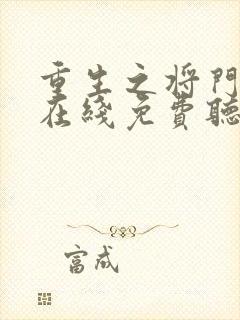 重生之将門
在綫免費聽
富成